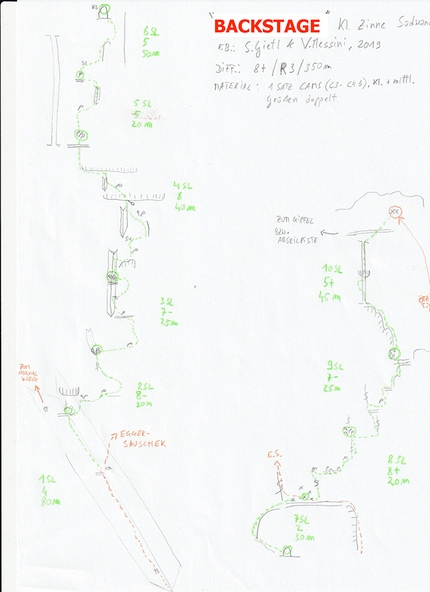 "BACKSTAGE" Kl. Zinne Südwand
EB.: S. Gietl & V. Messini, 2019
DIFF.: 8+/R3/350m
MATERIAL: 1 SATZ CAMS, Kl. + mittl.
Größen doppelt
6SL
5
50m
5SL
5
20m
4SL
8
40m
3SL
7-
25m
2SL
8-
20m
ZUM
NORMAL
WEG
EGGER-
SAUSCHEK
1SL
4
80m
ZUM GIPFEL
BZW.
ABSEILPISTE
10SL
5+
45m
9SL
7-
25m
8SL
8+
20m
E.S.
7SL
2
30m